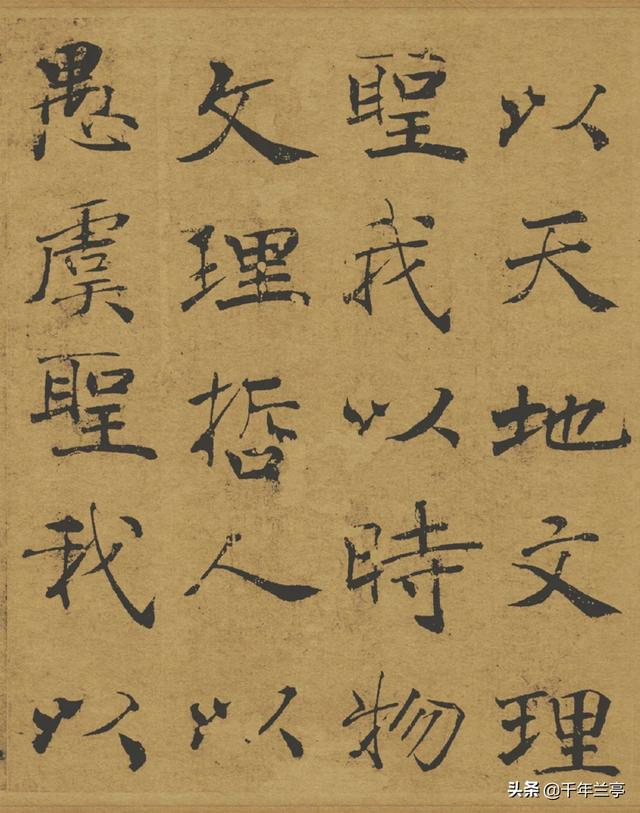 以天地文理
聖我以時物
文理哲人以
愚虞聖我以
头条 @千年兰亭